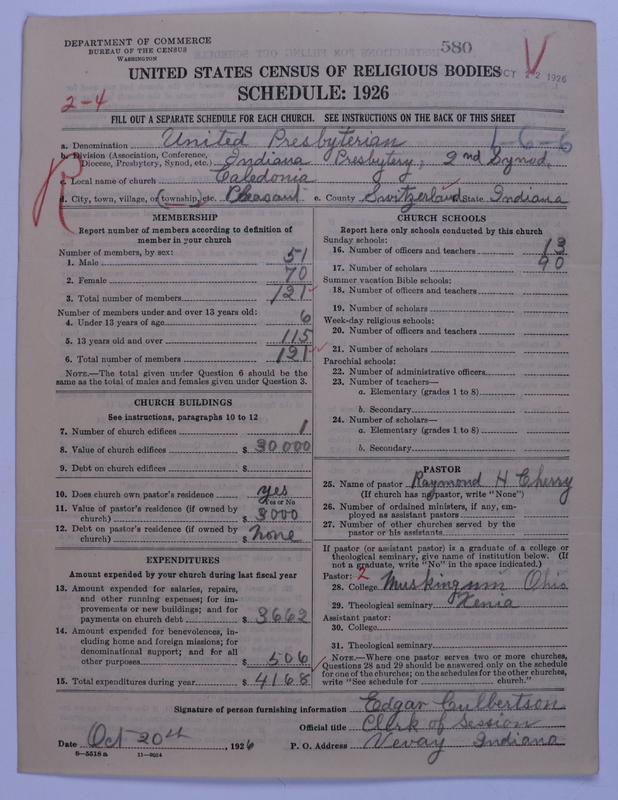 DEPARTMENT OF COMMERCE
BUREAU OF THE CENSUS
WASHINGTON
580
OCT 22 1926
UNITED STATES CENSUS OF RELIGIOUS BODIES
SCHEDULE: 1926
2-4
FILL OUT A SEPARATE SCHEDULE FOR EACH CHURCH. SEE INSTRUCTIONS ON THE BACK OF THIS SHEET
1-6-6
a. Denomination United Presbyterian
b. Division (Association, Conference, Diocese, Presbytery, Synod, etc.) Indiana Presbytery, 2nd Synod.
c. Local name of church Caledonia
d. City, town, village, or township, etc. Pleasant e. County Switzerland State Indiana
MEMBERSHIP
Report number of members according to definition of
member in your church
Number of members, by sex:
1. Male 51
2. Female 70
3. Total number of members 121
Number of members under and over 13 years old:
4. Under 13 years of age 6
5. 13 years old and over 115
6. Total number of members 121
NOTE.—The total given under Question 6 should be
same as the total of males and females given under Question 3.
CHURCH BUILDINGS
See instructions, paragraphs 10 to 12
7. Number of church edifices 1
8. Value of church edifices $ 30000
9. Debt on church edifices $
10. Does church own pastor's residence yes
Yes or No
11. Value of pastor's residence (if owned by
church) $ 3000
12. Debt on pastor's residence (if owned by
church) $ none
EXPENDITURES
Amount expended by your church during last fiscal year
13. Amount expended for salaries, repairs,
and other running expenses; for im-
provements or new buildings; and for
payments on church debt $ 3662
14. Amount expended for benevolences, in-
cluding home and foreign missions; for
denominational support; and for all
other purposes $ 506
15. Total expenditures during year $ 4168
CHURCH SCHOOLS
Report here only schools conducted by this church
Sunday schools:
16. Number of officers and teachers 13
17. Number of scholars 90
Summer vacation Bible schools:
18. Number of officers and teachers
19. Number of scholars
Week-day religious schools:
20. Number of officers and teachers
21. Number of scholars
Parochial schools:
22. Number of administrative officers
23. Number of teachers—
a. Elementary (grades 1 to 8)
b. Secondary
24. Number of scholars—
a. Elementary (grades 1 to 8)
b. Secondary
PASTOR
25. Name of pastor Raymond H Cherry
(If church has no pastor, write "None")
26. Number of ordained ministers, if any, em-
ployed as assistant pastors
27. Number of other churches served by the
pastor or his assistants
If pastor (or assistant pastor) is a graduate of a college or
theological seminary, give name of institution below. (If
not a graduate, write "No" in the space indicated.)
Pastor: 2
28. College Muskingum Ohio
29. Theological seminary Xenia
Assistant pastor:
30. College
31. Theological seminary
NOTE.—Where one pastor serves two or more churches,
Questions 28 and 29 should be answered only on the schedule
for one of the churches; on the schedules for the other churches,
write "See schedule for church."
Signature of person furnishing information Edgar Culbertson
Official title Clerk of Session
Date Oct 20th, 1926 P. O. Address Vevay Indiana
8-5518a 11-9024